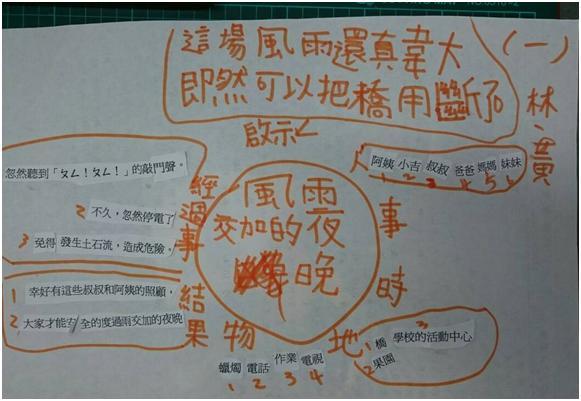 (一)
林、黃
這場風雨還真韋大
即然可以把橋用斷了
啟示
1 阿姨 小吉 叔叔 爸爸 媽媽 妹妹
忽然聽到「ㄆㄥ!ㄆㄥ!」的敲門聲。
2 不久,忽然停電了
3 免得 發生土石流,造成危險。
經過事
風雨
交加的夜
晚
事
時
1 幸好有這些叔叔和阿姨的照顧,
2 大家才能安 全的度過雨交加的夜晚
結果
物
地
蠟燭 電話 作業 電視
1 2 3 4
1 橋 3 學校的活動中心
2 果園